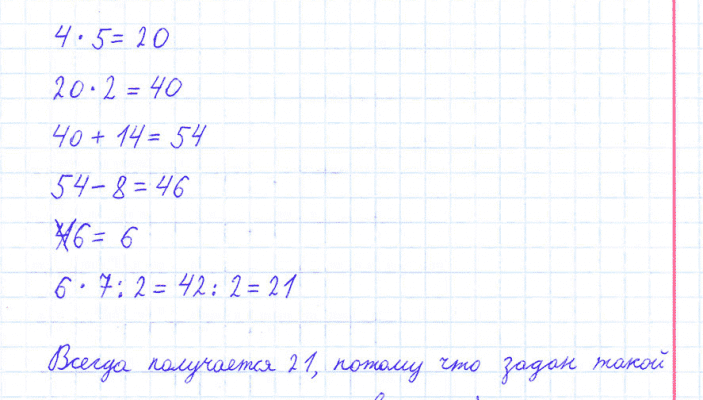 4 · 5 = 20
20 · 2 = 40
40 + 14 = 54
54 - 8 = 46
46 = 6
6 · 7 : 2 = 42 : 2 = 21
Всегда получается 21, потому что задан такой